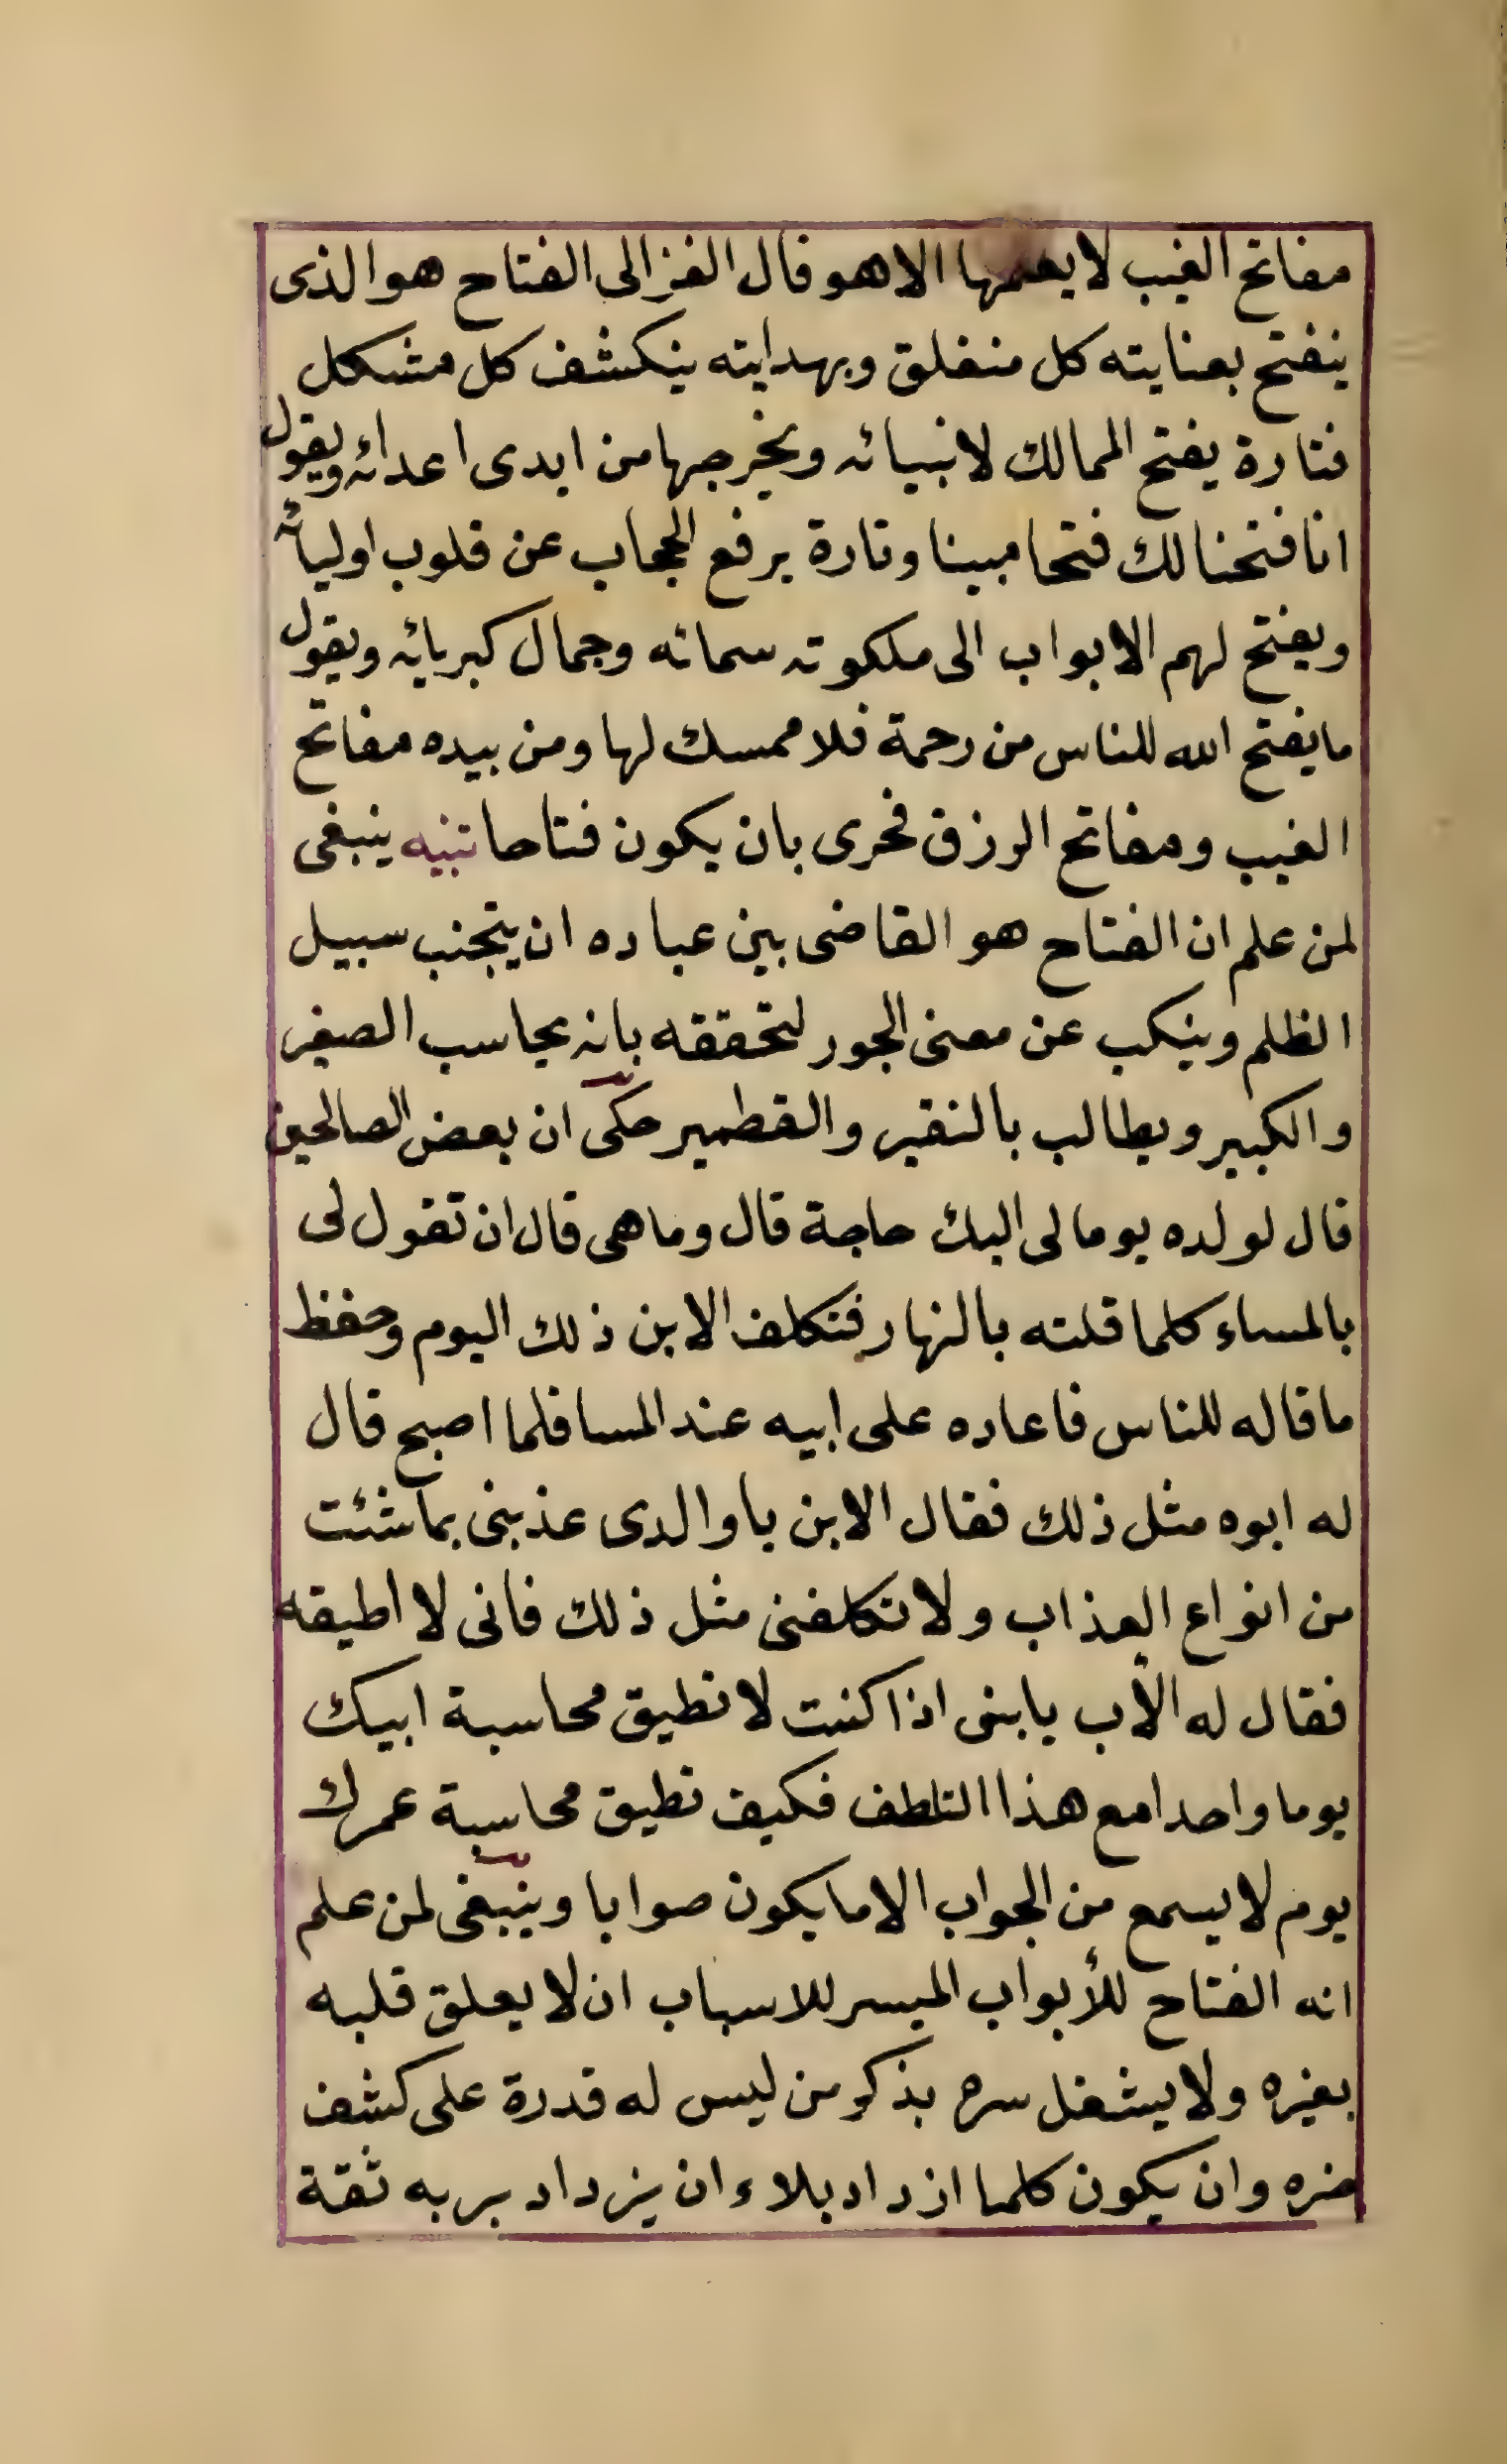 مفاتح الغيب لا يعلمها الا هو قال الغزالى الفتاح هو الذى
ينفتح بعنايته كل منغلق وبهدايته ينكشف كل مشكل
فتارة يفتح الممالك لانبيائه ويخرجها من ايدى اعدائه ويقول
انا فتحنا لك فتحا مبينا وتارة يرفع الحجاب عن قلوب اوليائه
ويفتح لهم الابواب الى ملكوته سمائه وجمال كبريائه ويقول
ما يفتح الله للناس من رحمة فلا ممسك لها ومن بيده مفاتح
الغيب ومفاتح الرزق فحرى بان يكون فتاحا تنبيه ينبغى
لمن علم ان الفتاح هو القاضى بين عباده ان يتجنب سبيل
الظلم وينكب عن معنى الجور لتحققه بانه يحاسب الصغير
والكبير ويطالب بالنقير والقطمير حكى ان بعض الصالحين
قال لولده يوما لى اليك حاجة قال وما هى قال ان تقول لى
بالمساء كلما قلته بالنهار فتكلف الابن ذلك اليوم وحفظ
ما قاله للناس فاعاده على ابيه عند المسا فلما اصبح قال
له ابوه مثل ذلك فقال الابن يا والدى عذبنى بما شئت
من انواع العذاب ولا تكلفنى مثل ذلك فانى لا اطيقه
فقال له الأب يا بنى اذا كنت لا تطيق محاسبة ابيك
يوما واحدا مع هذا التلطف فكيف تطيق محاسبة عمرك
يوم لا يسمع من الجواب الا ما يكون صوابا وينبغى لمن علم
انه الفتاح للأبواب الميسر للاسباب ان لا يعلق قلبه
بغيره ولا يشغل سره بذكر من ليس له قدرة على كشف
ضره وان يكون كلما ازداد بلاء ان يزداد بربه ثقة